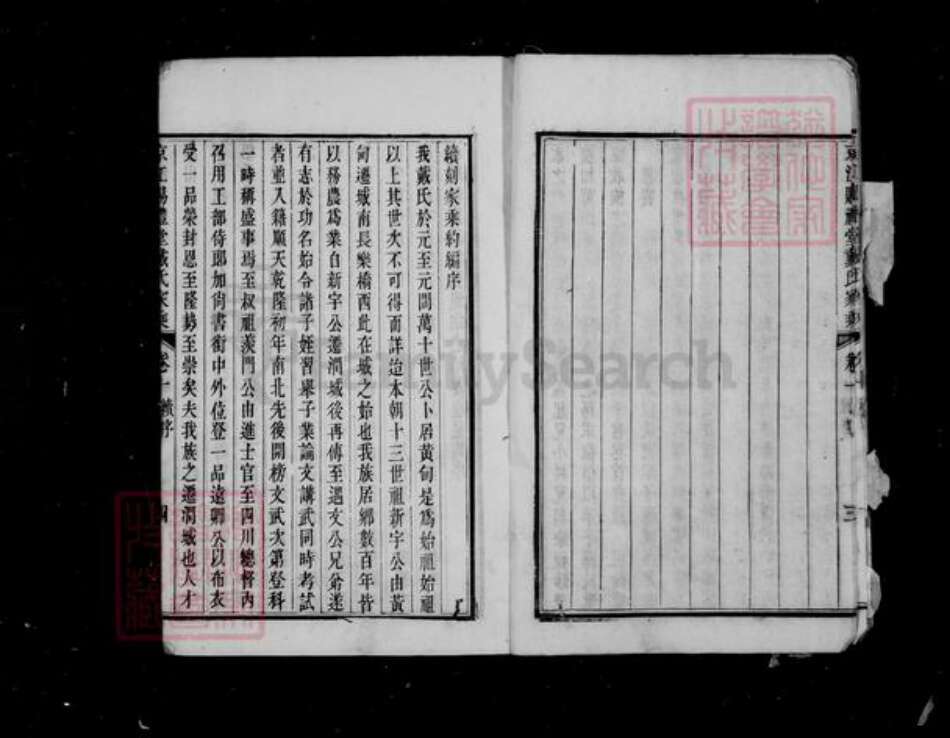 續刻家乘約編序
我戴氏於元至元間萬十世公卜居黃甸是爲始祖始祖
以上其世次不可得而詳迨本朝十三世祖新宇公由黃
甸遷城南長樂橋西此在城之始也我族居鄉數百年皆
以務農爲業自新宇公遷潤城後再傳至遇文公兄弟遂
有志於功名始令諸子姪習舉子業論文講武同時考試
者並入籍順天乾隆初年南北先後開榜文武次第登科
一時稱盛事焉至叔祖羨門公由進士官至四川總督內
召用工部侍郎加尚書銜中外位登一品遠卿公以布衣
受一品榮封恩至隆勢至崇矣夫我族之遷潤城也人才
京江 禮堂戴氏家乘 卷一 續序 四
京江 禮堂戴氏家乘 卷一 三
FamilySearch